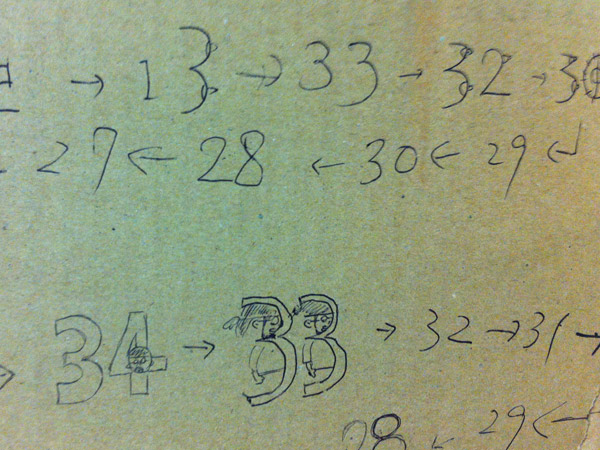 → 13 → 33 → 32 → 3
27 ← 28 ← 30 ← 29 ←
→ 34 → 33 → 32 → 31 →
28 ← 29 ←